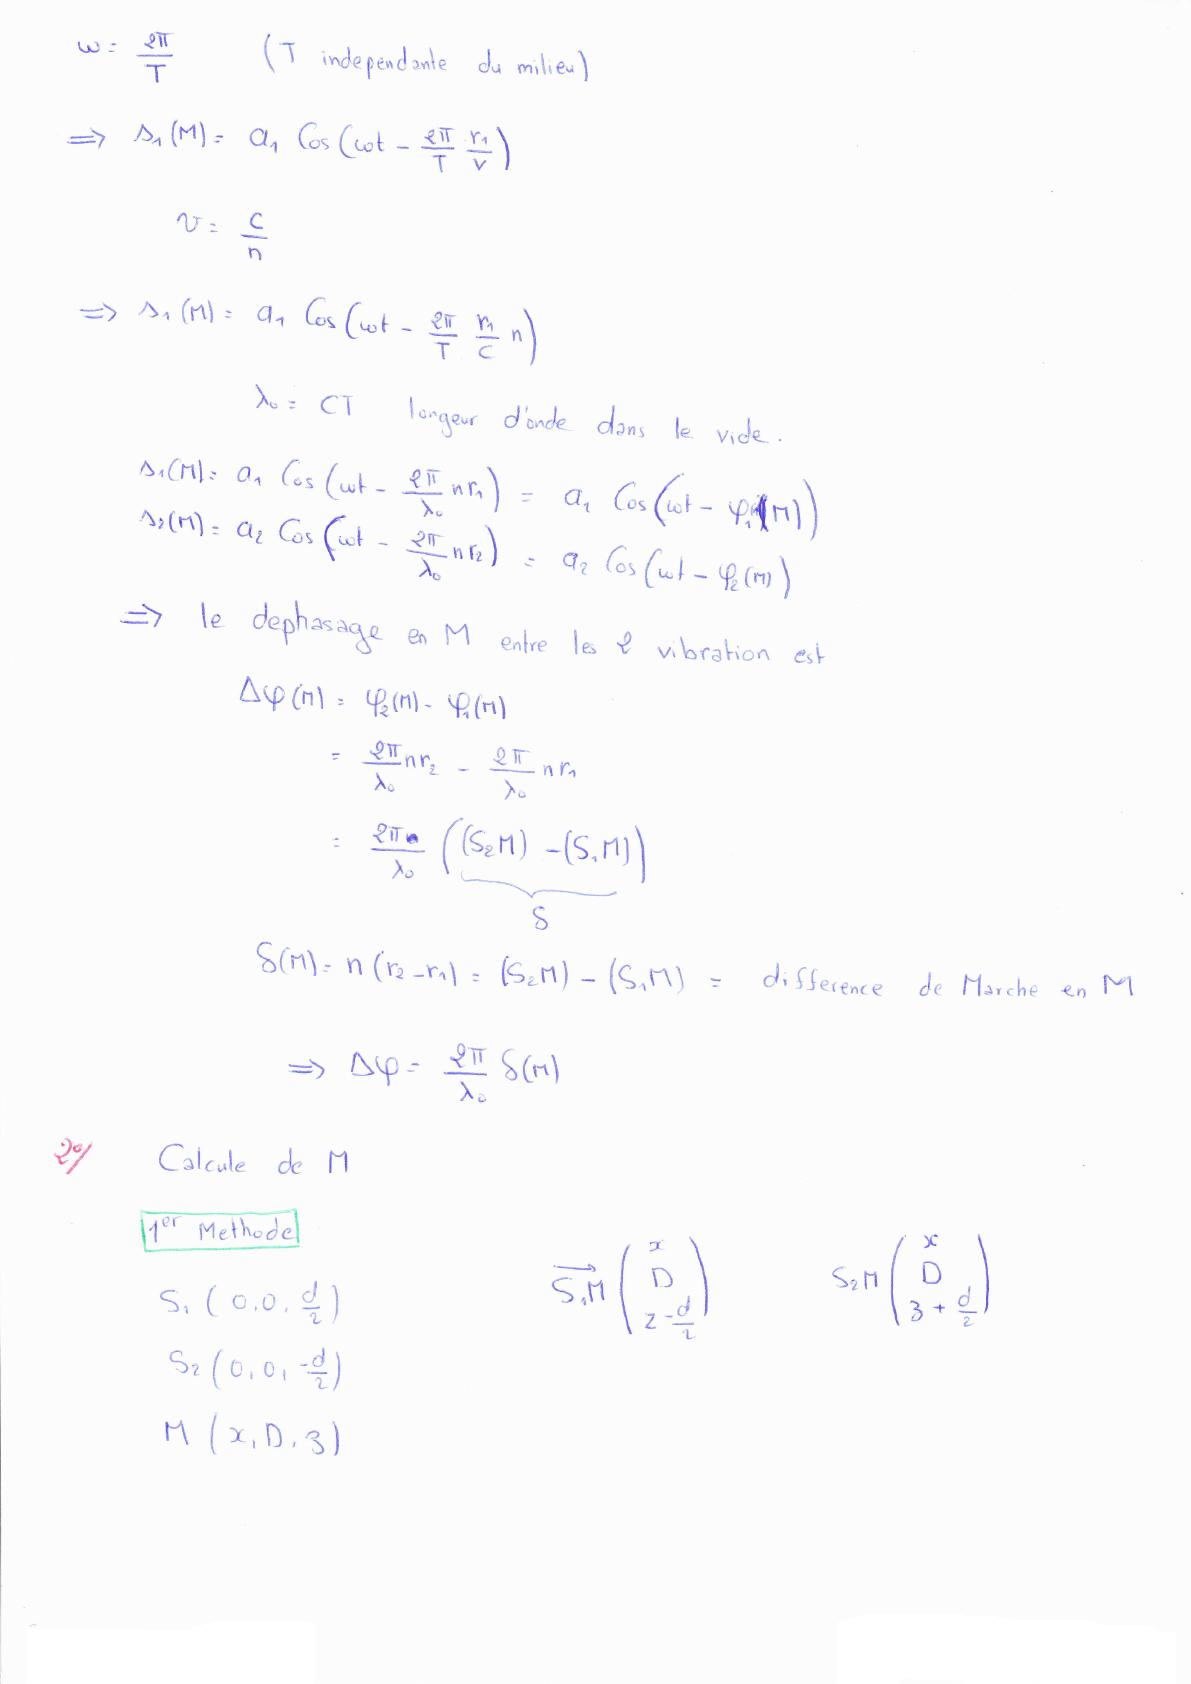 ω = 2π/T (T independante du milieu)
⇒ s₁(M) = a₁ Cos(ωt - 2π/T r₁/v)
v = c/n
⇒ s₁(M) = a₁ Cos(ωt - 2π/T r₁/C n)
λ₀ = CT longeur d'onde dans le vide.
s₁(M) = a₁ Cos(ωt - 2π/λ₀ n r₁) = a₁ Cos(ωt - φ₁(M))
s₂(M) = a₂ Cos(ωt - 2π/λ₀ n r₂) = a₂ Cos(ωt - φ₂(M))
⇒ le dephasage en M entre les 2 vibration est
Δφ(M) = φ₂(M) - φ₁(M)
= 2π/λ₀ n r₂ - 2π/λ₀ n r₁
= 2π/λ₀ ((S₂M) - (S₁M))
δ
δ(M) = n (r₂ - r₁) = (S₂M) - (S₁M) = difference de Marche en M
⇒ Δφ = 2π/λ₀ δ(M)
2°/ Calcule de M
1er Methode
S₁ (0, 0, d/2) S₁M→ (x D z - d/2) S₂M (x D z + d/2)
S₂ (0, 0, -d/2)
M (x, D, z)